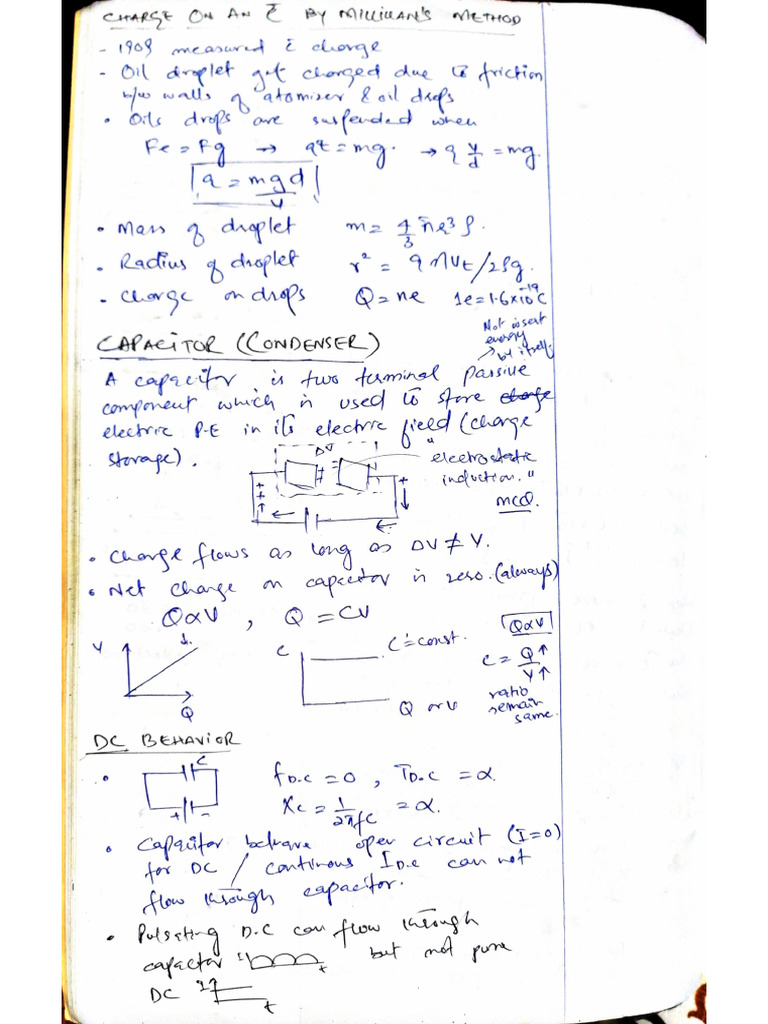 CHARGE ON AN ē BY MILLIKAN'S METHOD
- 1909 measured ē charge
- Oil droplet get charged due to friction
b/w walls of atomizer & oil drops
• Oils drops are suspended when
Fe = Fg → qE = mg. → q V/d = mg.
q = mgd/V
• Mass of droplet m = 4/3 πr³ρ.
• Radius of droplet r² = 9ηVt/2ρg.
• Charge on drops Q = ne 1e = 1.6×10⁻¹⁹C
CAPACITOR (CONDENSER)
Not insert
energy
by itself.
A capacitor is two terminal passive
component which is used to store charge
electric P.E in its electric field (charge
storage).
ΔV
"electrostatic
induction."
MCQ.
• Charge flows as long as ΔV ≠ V.
• Net charge on capacitor is zero. (always)
Q∝V , Q = CV
Q∝V
V
Q
C
C = const.
Q or V
C = Q↑/V↑
ratio
remain
same.
DC BEHAVIOR
• C
f D.C = 0 , T D.C = α
Xc = 1/2πfC = α.
• Capacitor behave open circuit (I=0)
for DC / continous I D.C can not
flow through capacitor.
• Pulsating D.C can flow through
capacitor I t but not pure
DC I t